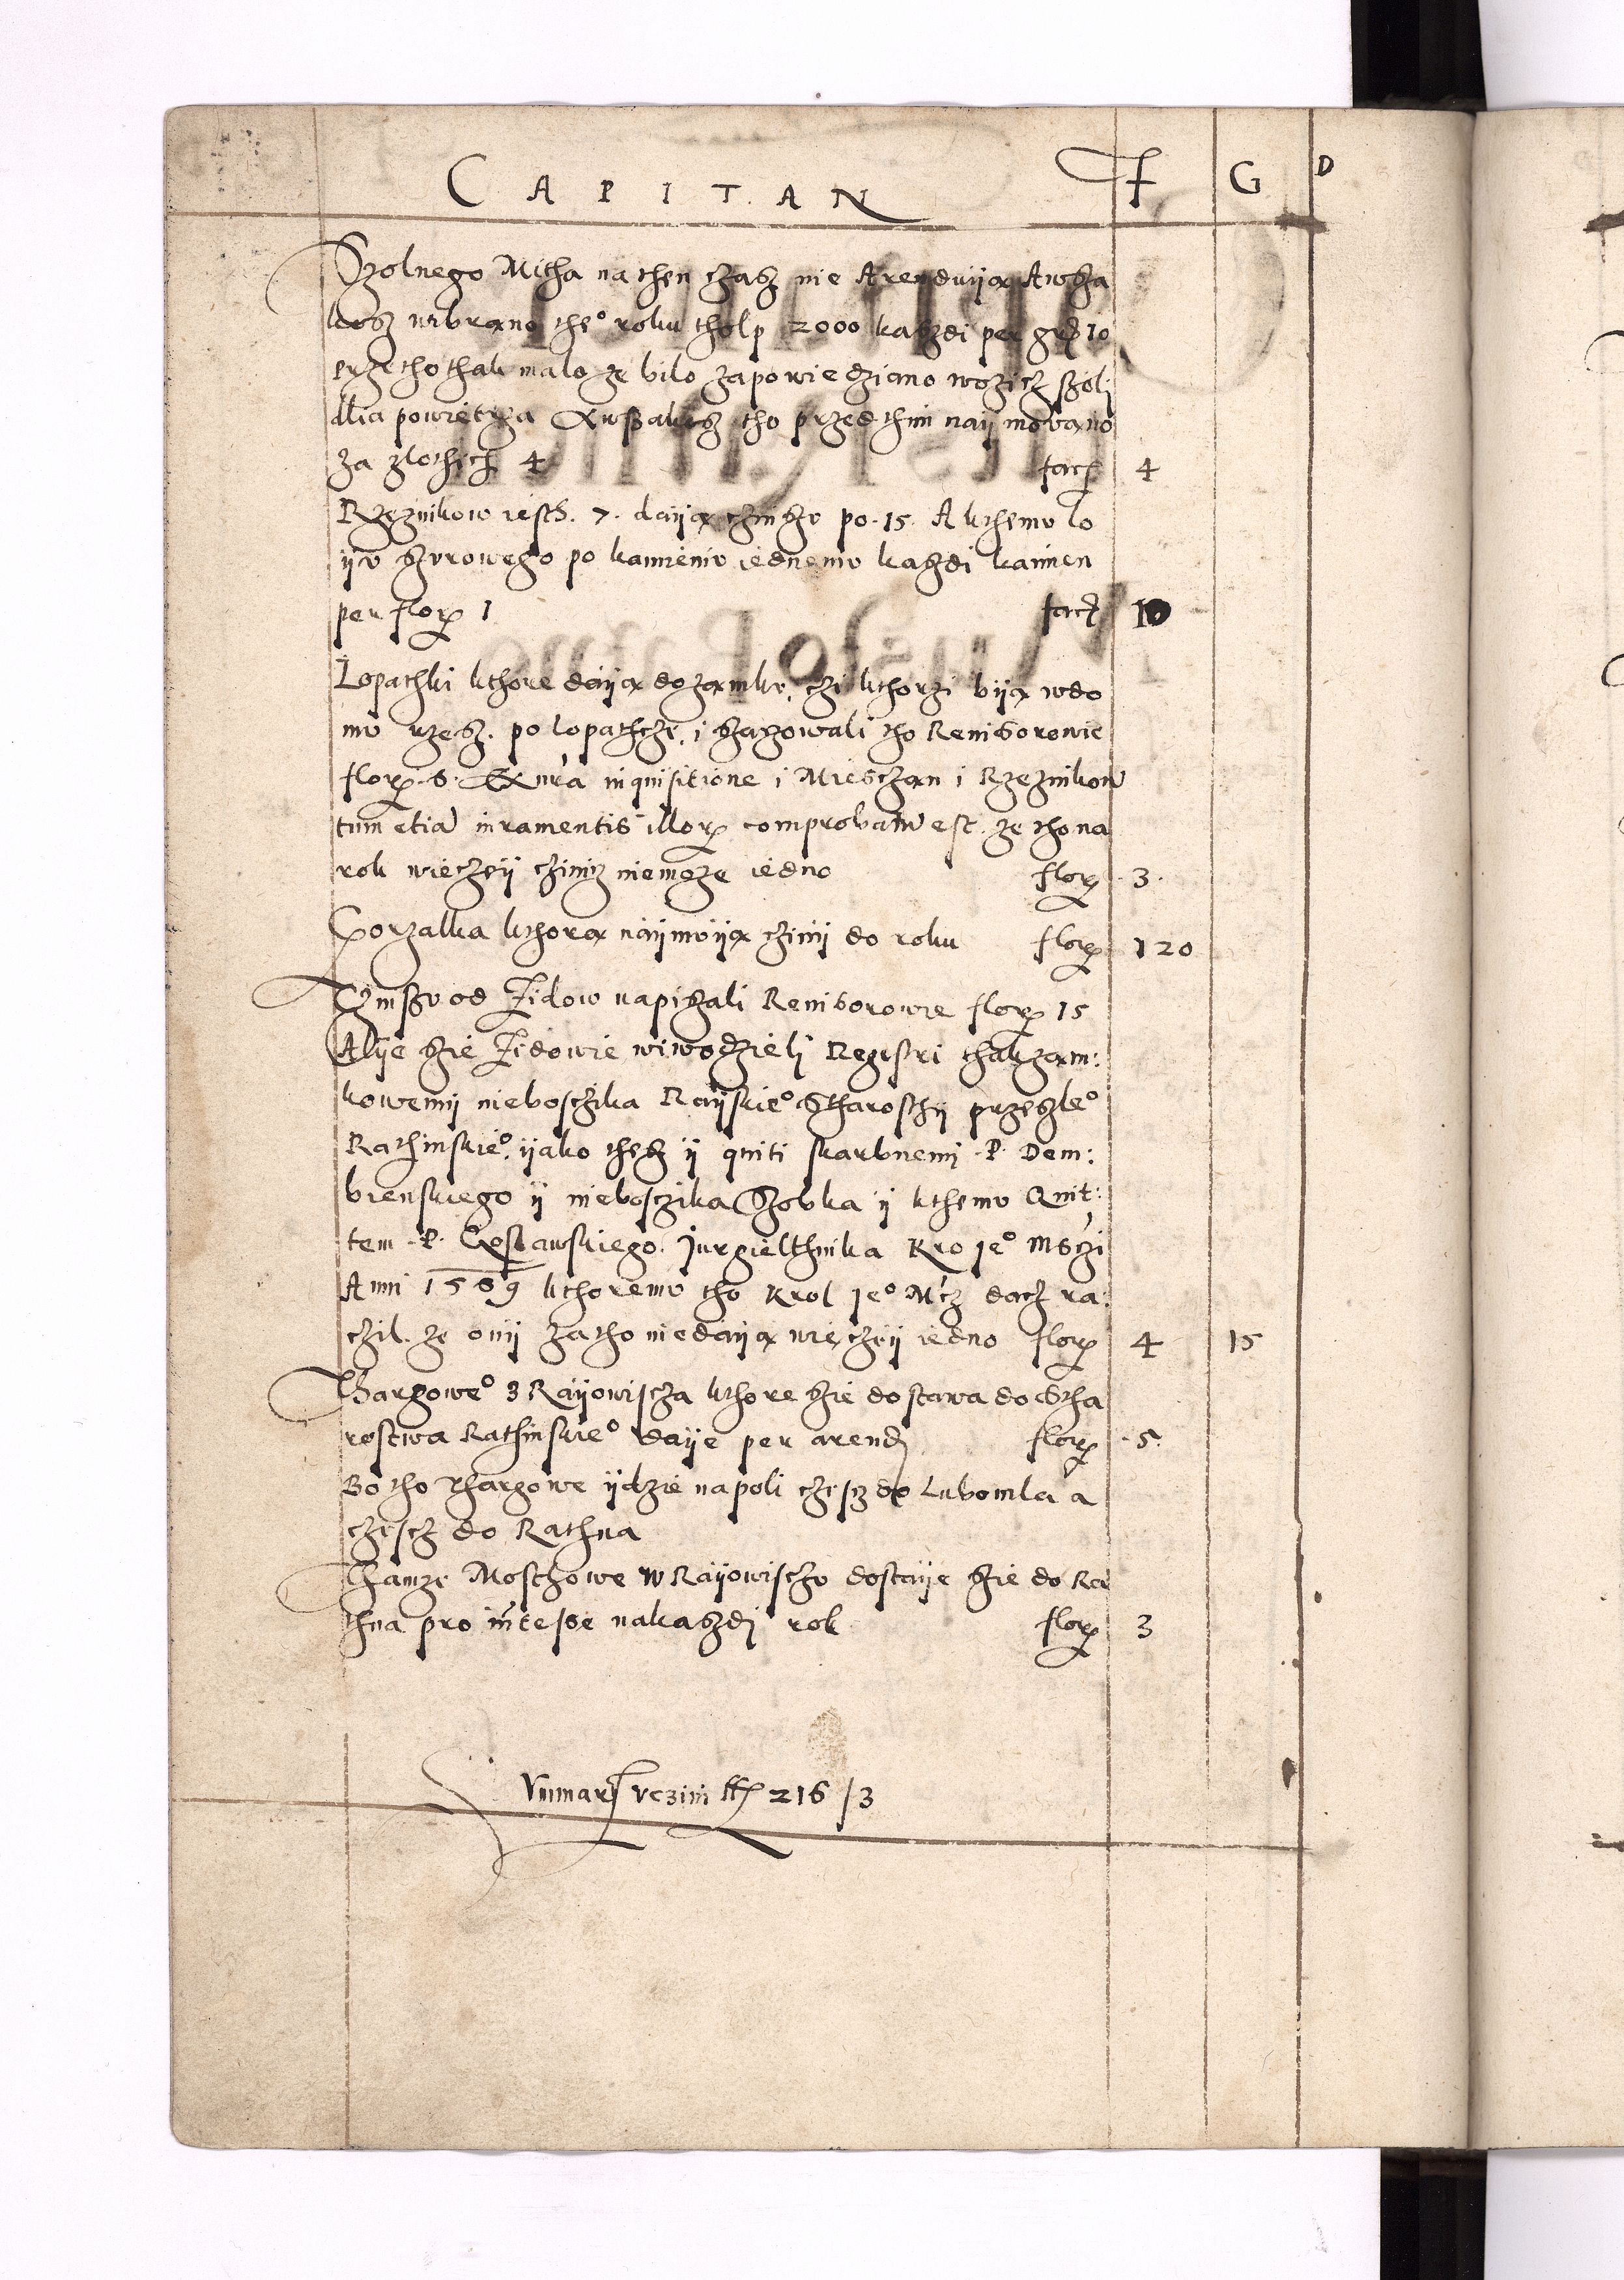 CAPITAN F G D
Szolnego Mitha na then czasz nie Arenduiją Awsza
kosz wibrano the° roku tholp 2000 kaszdi per gr 10
przetho thak malo ze bilo zapowiedziano wozicz szoli
dlia powietrza Awszakosz tho przed thim naijmovano
za zlothich 4 facit 4
Rzeznikow iesth. 7. daiją czinszv po 15. A kthemv lo
ijv szvrowego po kamieniv iednemv kaszdi kamien
per flor 1 facit 10
Lopathki kthore daiją do zamkv, czi kthorzi biją wdo
mv rzesz. po lopathcze, i szaczowali tho Renisorowie
flor 6. inquisitione i Miesczan i Rzeznikow
tum etia iuramentis illor comprobatu est. ze tho na
rok wieczeij czinicz niemoze iedno flor 3
Gorzalka kthorą naijmviją czini do roku flor 120
Czinszv od Zidow napiszali Renisorowie flor 15
Alije szie Zidowie wiwodzieli Regestri thak zam:
kowemij nieboszika Raijskie° Stharosthij przeszle°
Rathinskie°, ijako thesz ij quiti skarbnemi P. Dem:
bienskiego ij nieboszika Szobka ij kthemv Quit:
tem P. Jurgielthnika Kro Je° Msczi
Anni 1569 kthoremv tho Krol Je° Mcz dacz ra:
czil. ze onij zatho niedaiją wieczeij iedno flor 4 15
Thargowe° z Raijowiscza kthore szie dostawa do Stha
rostwa Rathinskie° daije per arend flor 5
Bo tho Thargowe ijdzie napoli czescz do Lubomla a
czescz do Rathna
Thamze Mosthowe W Raijowisczv dostaije szie do Ra
thna pro interesse nakaszdj rok flor 3
Summar vczini ff 216 / 3